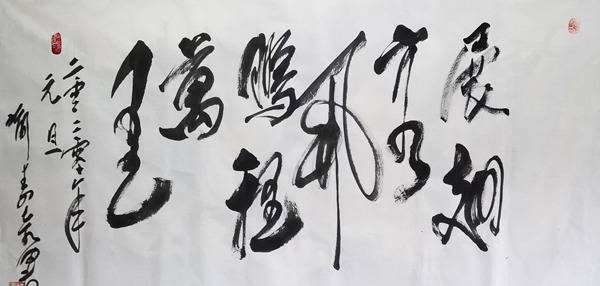 展翅
高
飛
鵬程
萬
里
二零二零年
元旦